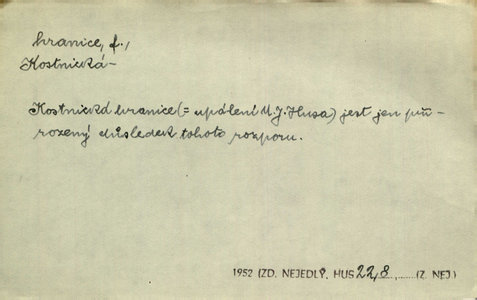 hranice, f.,
Kostnická-
Kostnická hranice (= upálení M.J.Husa) jest jen při-
rozený důsledek tohoto rozporu.
1952 (ZD. NEJEDLÝ, HUS 22,8 ,......(Z. NEJ.)